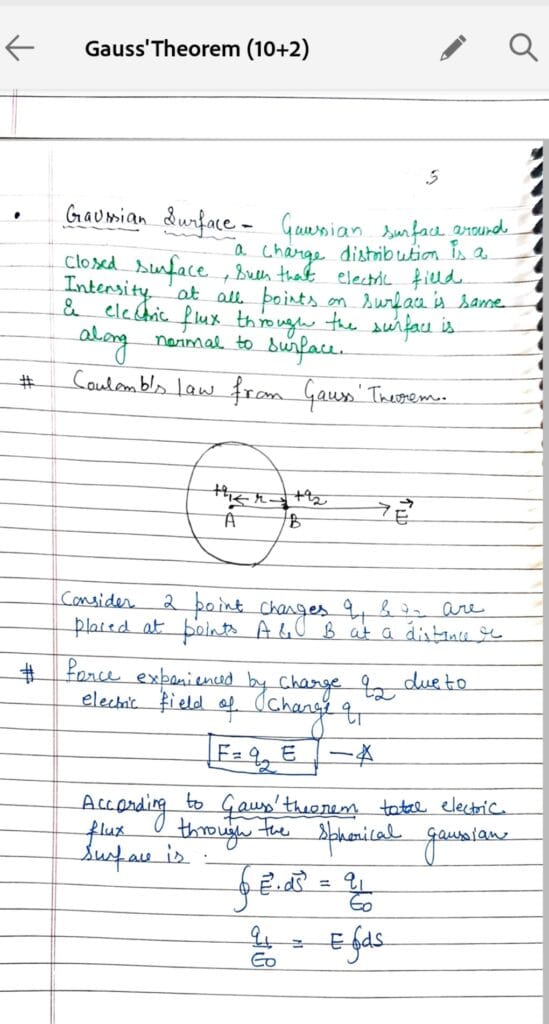 Gauss'Theorem (10+2)
5
• Gaussian Surface - Gaussian surface around
a charge distribution is a
closed surface, such that electric field
Intensity at all points on surface is same
& electric flux through the surface is
along normal to surface.
# Coulomb's law from Gauss' Theorem.
+q1 ← r → +q2
A B E⃗
Consider 2 point charges q1 & q2 are
placed at points A & B at a distance r
# Force experienced by charge q2 due to
electric field of charge q1
F = q2 E —☆
According to Gauss' theorem total electric
flux through the spherical gaussian
Surface is :
∮ E⃗.ds⃗ = q1/ε0
q1/ε0 = E ∮ds